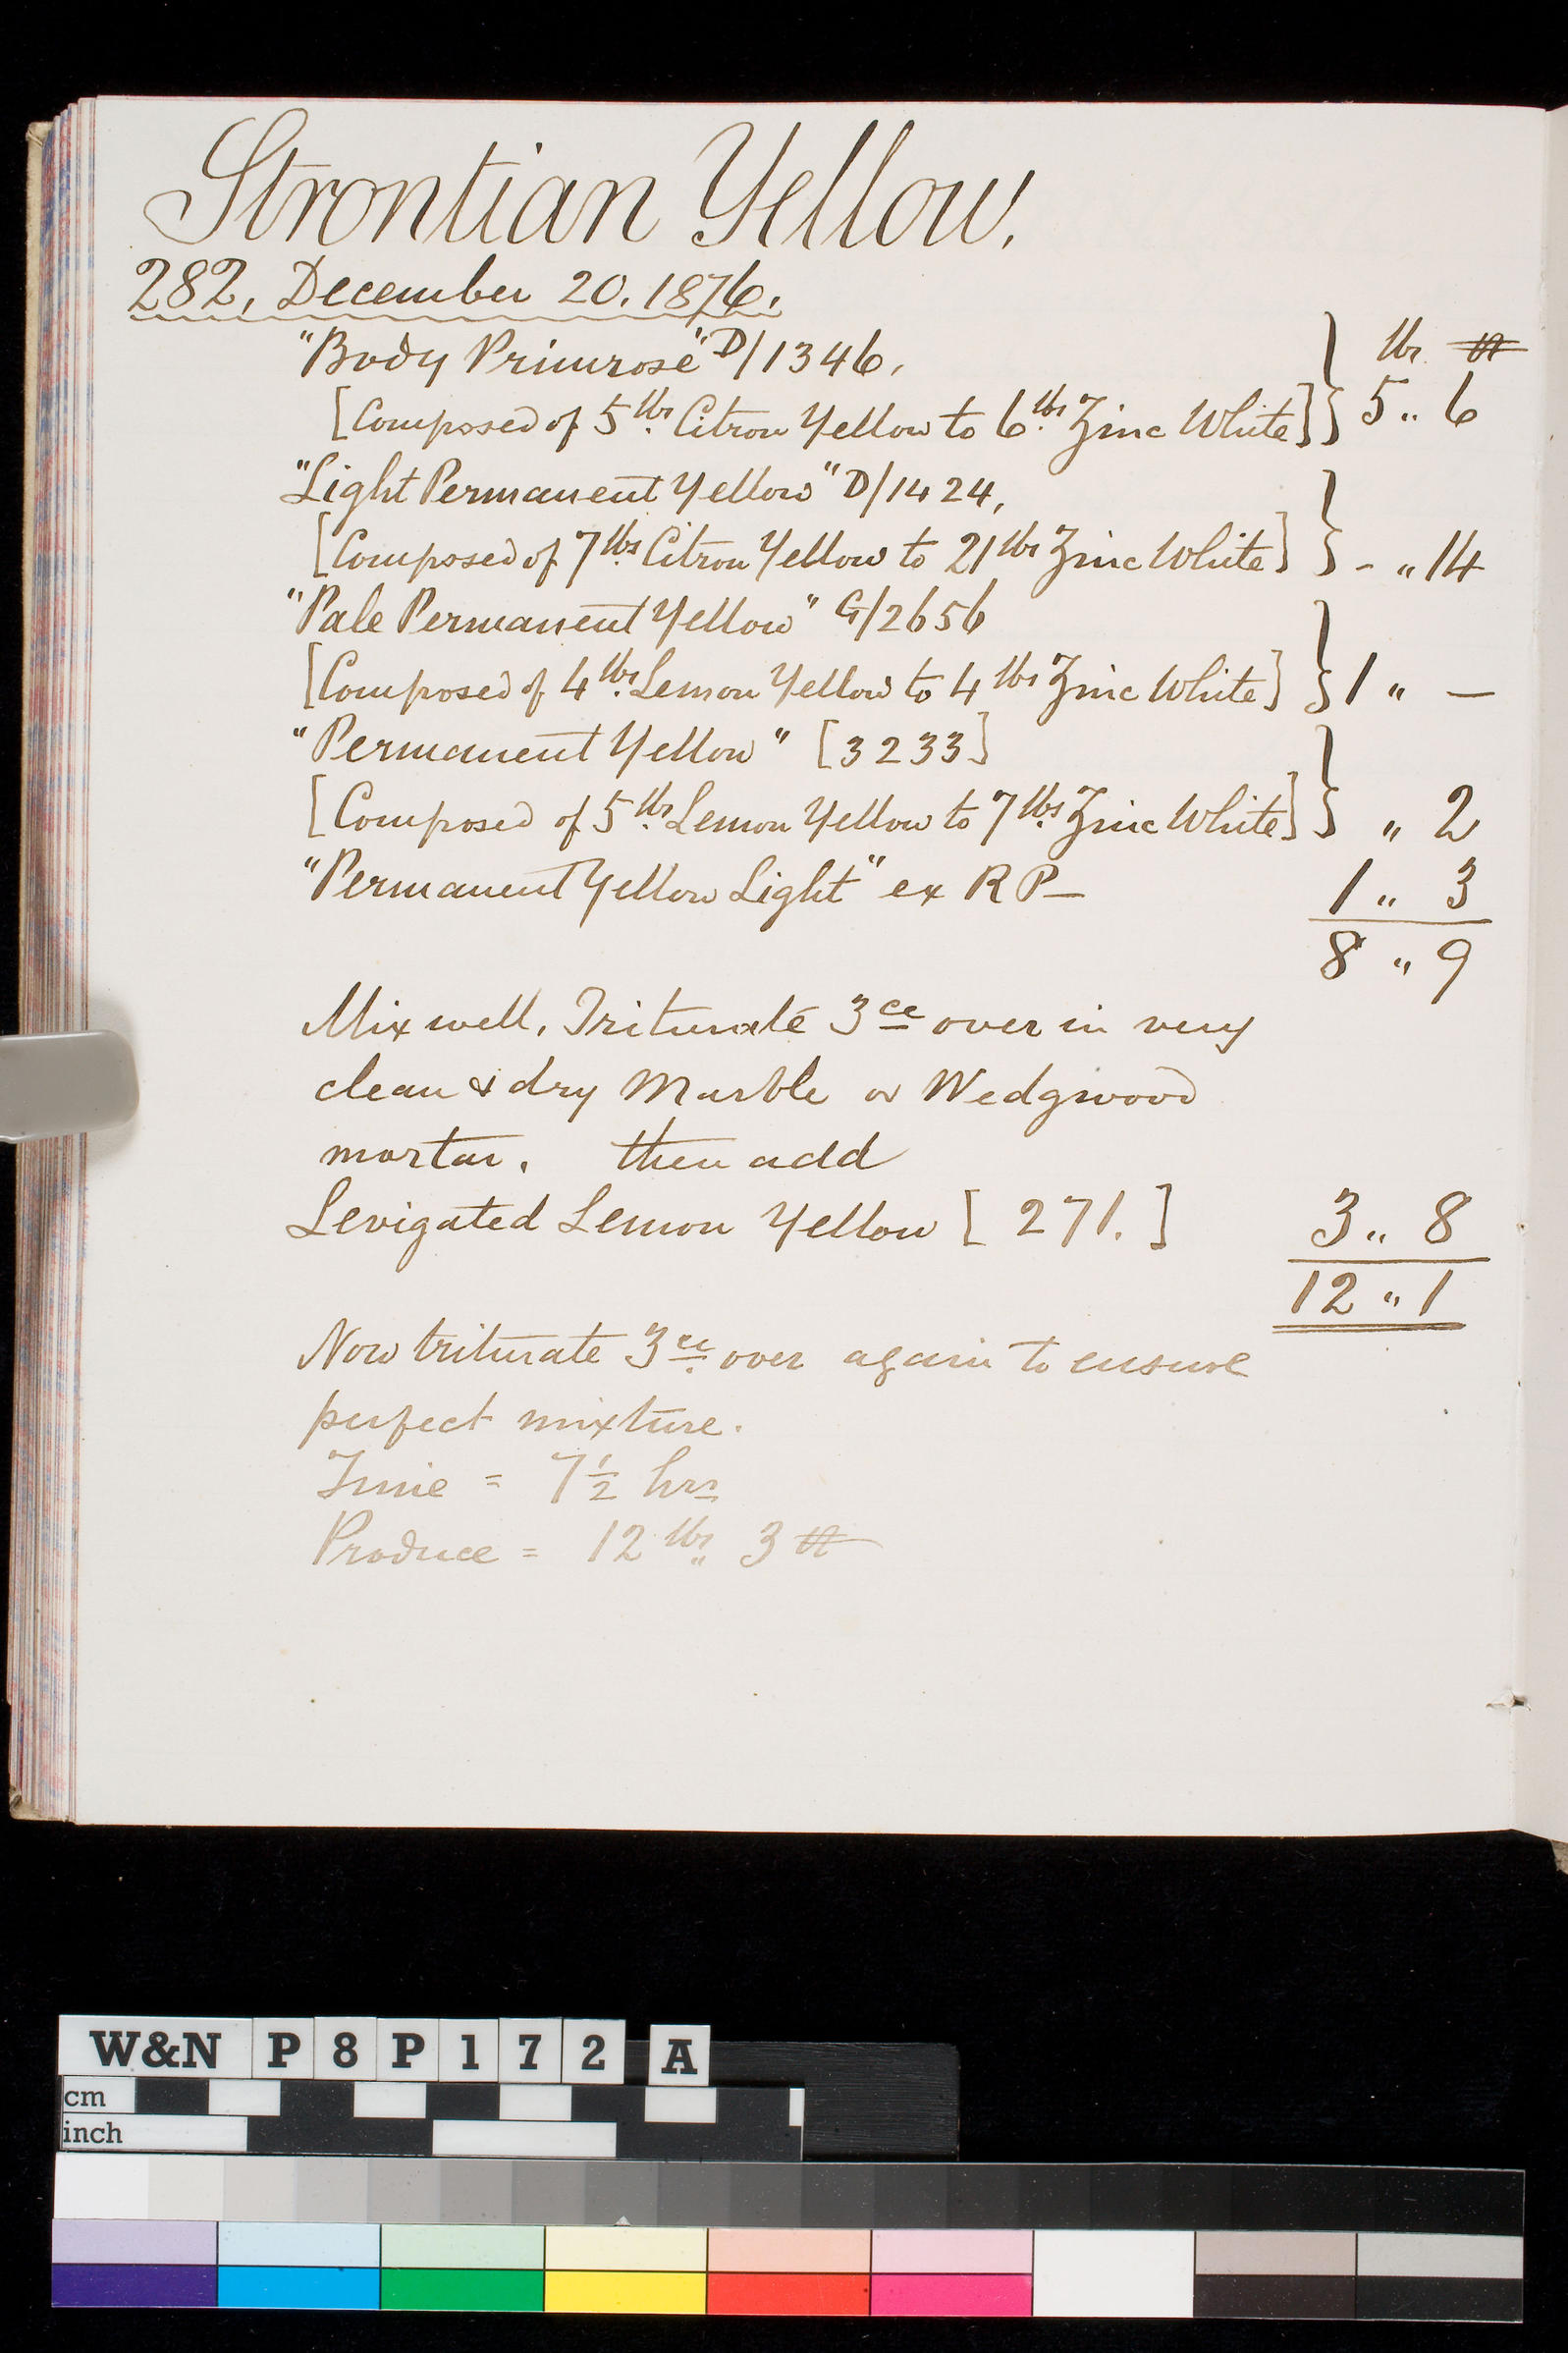 Strontian Yellow.
282, December 20. 1876.
lbs. oz
"Body Primrose" D/1346.
[Composed of 5 lbs. Citron Yellow to 6 lbs. Zinc White] } 5 " 6
"Light Permanent Yellow" D/1424,
[Composed of 7 lbs. Citron Yellow to 21 lbs Zinc White] } - " 14
"Pale Permanent Yellow" G/2656
[Composed of 4 lbs. Lemon Yellow to 4 lbs Zinc White] } 1 " —
"Permanent Yellow" [3233]
[Composed of 5 lbs. Lemon Yellow to 7 lbs. Zinc White] } " 2
"Permanent Yellow Light" ex R P — 1 " 3
8 " 9
Mix well. Triturate 3ce over in very
clean & dry Marble or Wedgwood
mortar. then add
Levigated Lemon Yellow [271.] 3 " 8
12 " 1
Now triturate 3ce over again to ensure
perfect mixture.
Time = 7½ hrs
Produce = 12 lbs " 3 oz
W&N P8P172 A
cm
inch